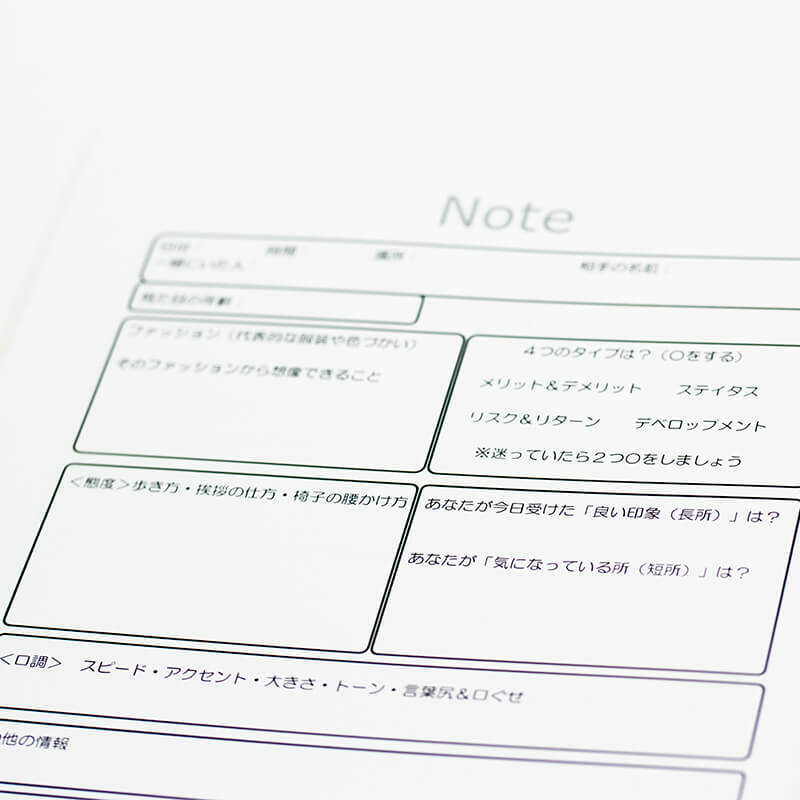 Note
日付： 時間： 場所：
一緒にいた人： 相手の名前：
見た目の年齢：
ファッション（代表的な服装や色づかい）
そのファッションから想像できること
４つのタイプは？（〇をする）
メリット＆デメリット ステイタス
リスク＆リターン デベロップメント
※迷っていたら２つ〇をしましょう
＜態度＞歩き方・挨拶の仕方・椅子の腰かけ方
あなたが今日受けた「良い印象（長所）」は？
あなたが「気になっている所（短所）」は？
＜口調＞ スピード・アクセント・大きさ・トーン・言葉尻＆口ぐせ
他の情報